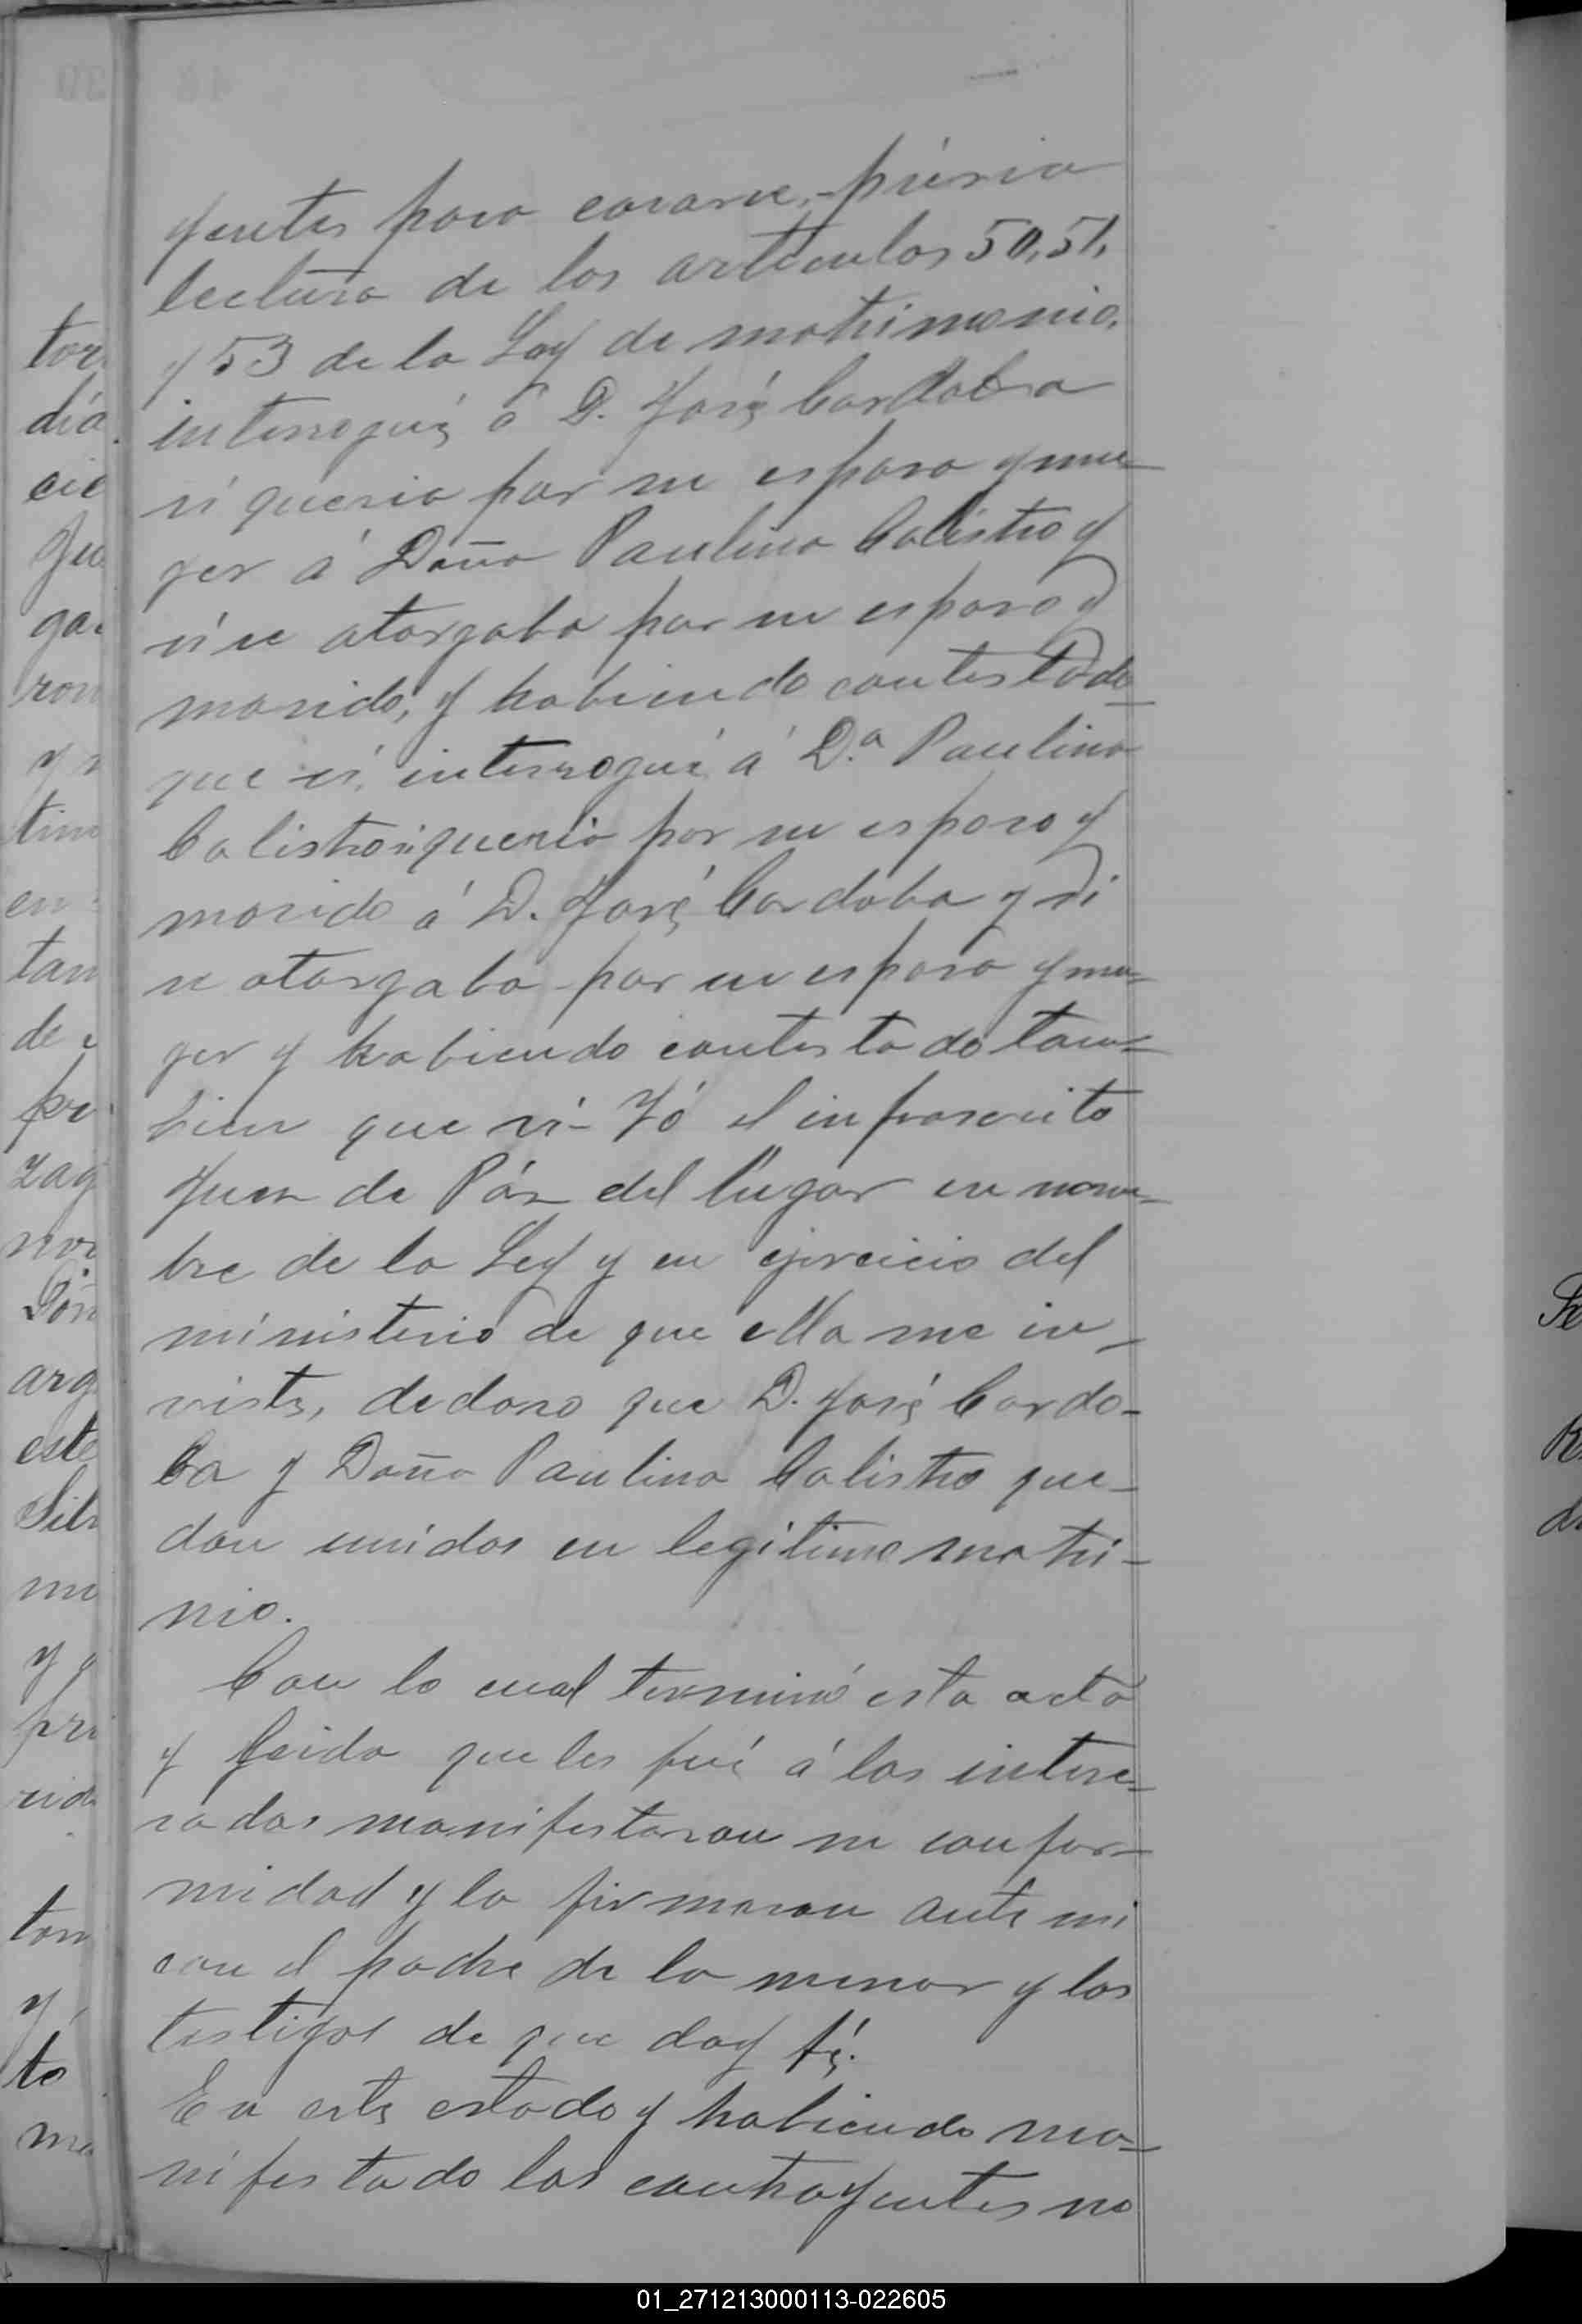 yentes para casarse, prévia
lectura de los artículos 50, 51,
y 53 de la Ley de matrimonio,
interrogué á D. José Cordoba
si queria por su esposa y mu-
ger á Doña Paulina Calistro y
si se otorgaba por su esposo y
marido, y habiendo contestado
que si, interrogué á D.ª Paulina
Calistro si queria por su esposo y
marido á D. José Cordoba y si
se otorgaba por su esposa y mu-
ger y habiendo contestado tam-
bien que si- Yó el infrascrito
Juez de Páz del lugar en nom-
bre de la Ley y en ejercicio del
ministerio de que ella me in-
viste, declaro que D. José Cordo-
ba y Doña Paulina Calistro que-
dan unidos en legítimo matri-
nio.
Con lo cual terminó esta acta
y leida que les fué á los intere-
sados manifestaron su confor-
midad y la firmaron ante mi
con el padre de la menor y los
testigos de que doy fé.
En este estado y habiendo ma-
nifestado los contrayentes no
01_271213000113-022605